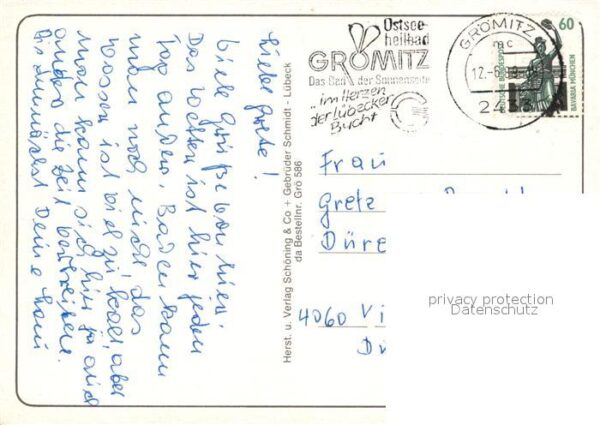 Liebe Grete!
Viele Grüße von hier.
Das Wetter ist hier jeden
Tag anders. Baden kann
man noch nicht das
Wasser ist viel zu kalt, aber
man kann sich hier ja auch
anders die Zeit vertreiben.
Bis demnächst Deine
Herst. u. Verlag Schöning & Co + Gebrüder Schmidt - Lübeck
da Bestellnr. Grö 586
Ostsee-
heilbad
GRÖMITZ
Das Bad der Sonnenseite
...im Herzen
der Lübecker
Bucht
GRÖMITZ
mc
12.-6.89
2433
60
DEUTSCHE BUNDESPOST
BAVARIA MÜNCHEN
Frau
Grete
Düre
4060 Vi
privacy protection
Datenschutz